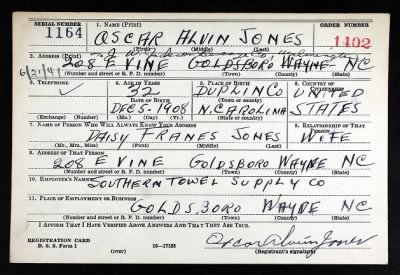 SERIAL NUMBER 1. NAME (Print) ORDER NUMBER
1164 OSCAR ALVIN JONES 1402
(First) (Middle) (Last)
2. ADDRESS (Print)
6/21/41 208 E VINE GOLDSBORO WAYNE NC
(Number and street or R. F. D. number) (Town) (County) (State)
3. TELEPHONE 4. AGE IN YEARS 5. PLACE OF BIRTH 6. COUNTRY OF CITIZENSHIP
32 DUPLIN CO UNITED
DATE OF BIRTH (Town or county)
DEC 5-1908 N. CAROLINA STATES
(Exchange) (Number) (Mo.) (Day) (Yr.) (State or country)
7. NAME OF PERSON WHO WILL ALWAYS KNOW YOUR ADDRESS 8. RELATIONSHIP OF THAT PERSON
DAISY FRANES JONES WIFE
(Mr., Mrs., Miss) (First) (Middle) (Last)
9. ADDRESS OF THAT PERSON
208 E VINE GOLDSBORO WAYNE NC
(Number and street or R. F. D. number) (Town) (County) (State)
10. EMPLOYER'S NAME
SOUTHERN TOWEL SUPPLY CO
11. PLACE OF EMPLOYMENT OR BUSINESS
GOLDSBORO WAYNE NC
(Number and street or R. F. D. number) (Town) (County) (State)
I AFFIRM THAT I HAVE VERIFIED ABOVE ANSWERS AND THAT THEY ARE TRUE.
REGISTRATION CARD
D. S. S. Form 1 (over) 16—17105 Oscar Alvin Jones
(Registrant's signature)